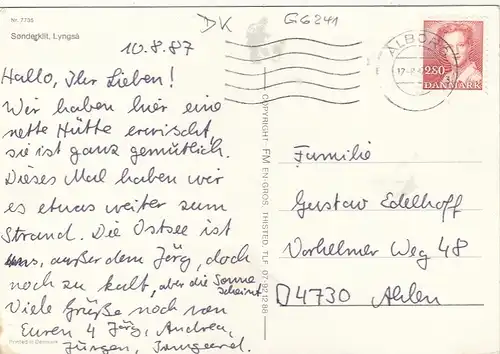 Nr. 7735
Sønderklit, Lyngså
DK GG241
10.8.87
Hallo, Ihr Lieben!
Wir haben hier eine
nette Hütte erwischt
sie ist ganz gemütlich.
Dieses Mal haben wir
es etwas weiter zum
Strand. Die Ostsee ist
uns, außer dem Jörg, doch
noch zu kalt, aber die Sonne
scheint
Viele Grüße noch von
Euren 4 Jörg, Andrea,
Jürgen, Irmgard.
Printed in Denmark
COPYRIGHT FM EN-GROS, THISTED, TLF. 07-92 12 88
ÅLBORG
280
DANMARK
Familie
Gustav Edelhoff
Vorhelmer Weg 48
D 4730 Ahlen